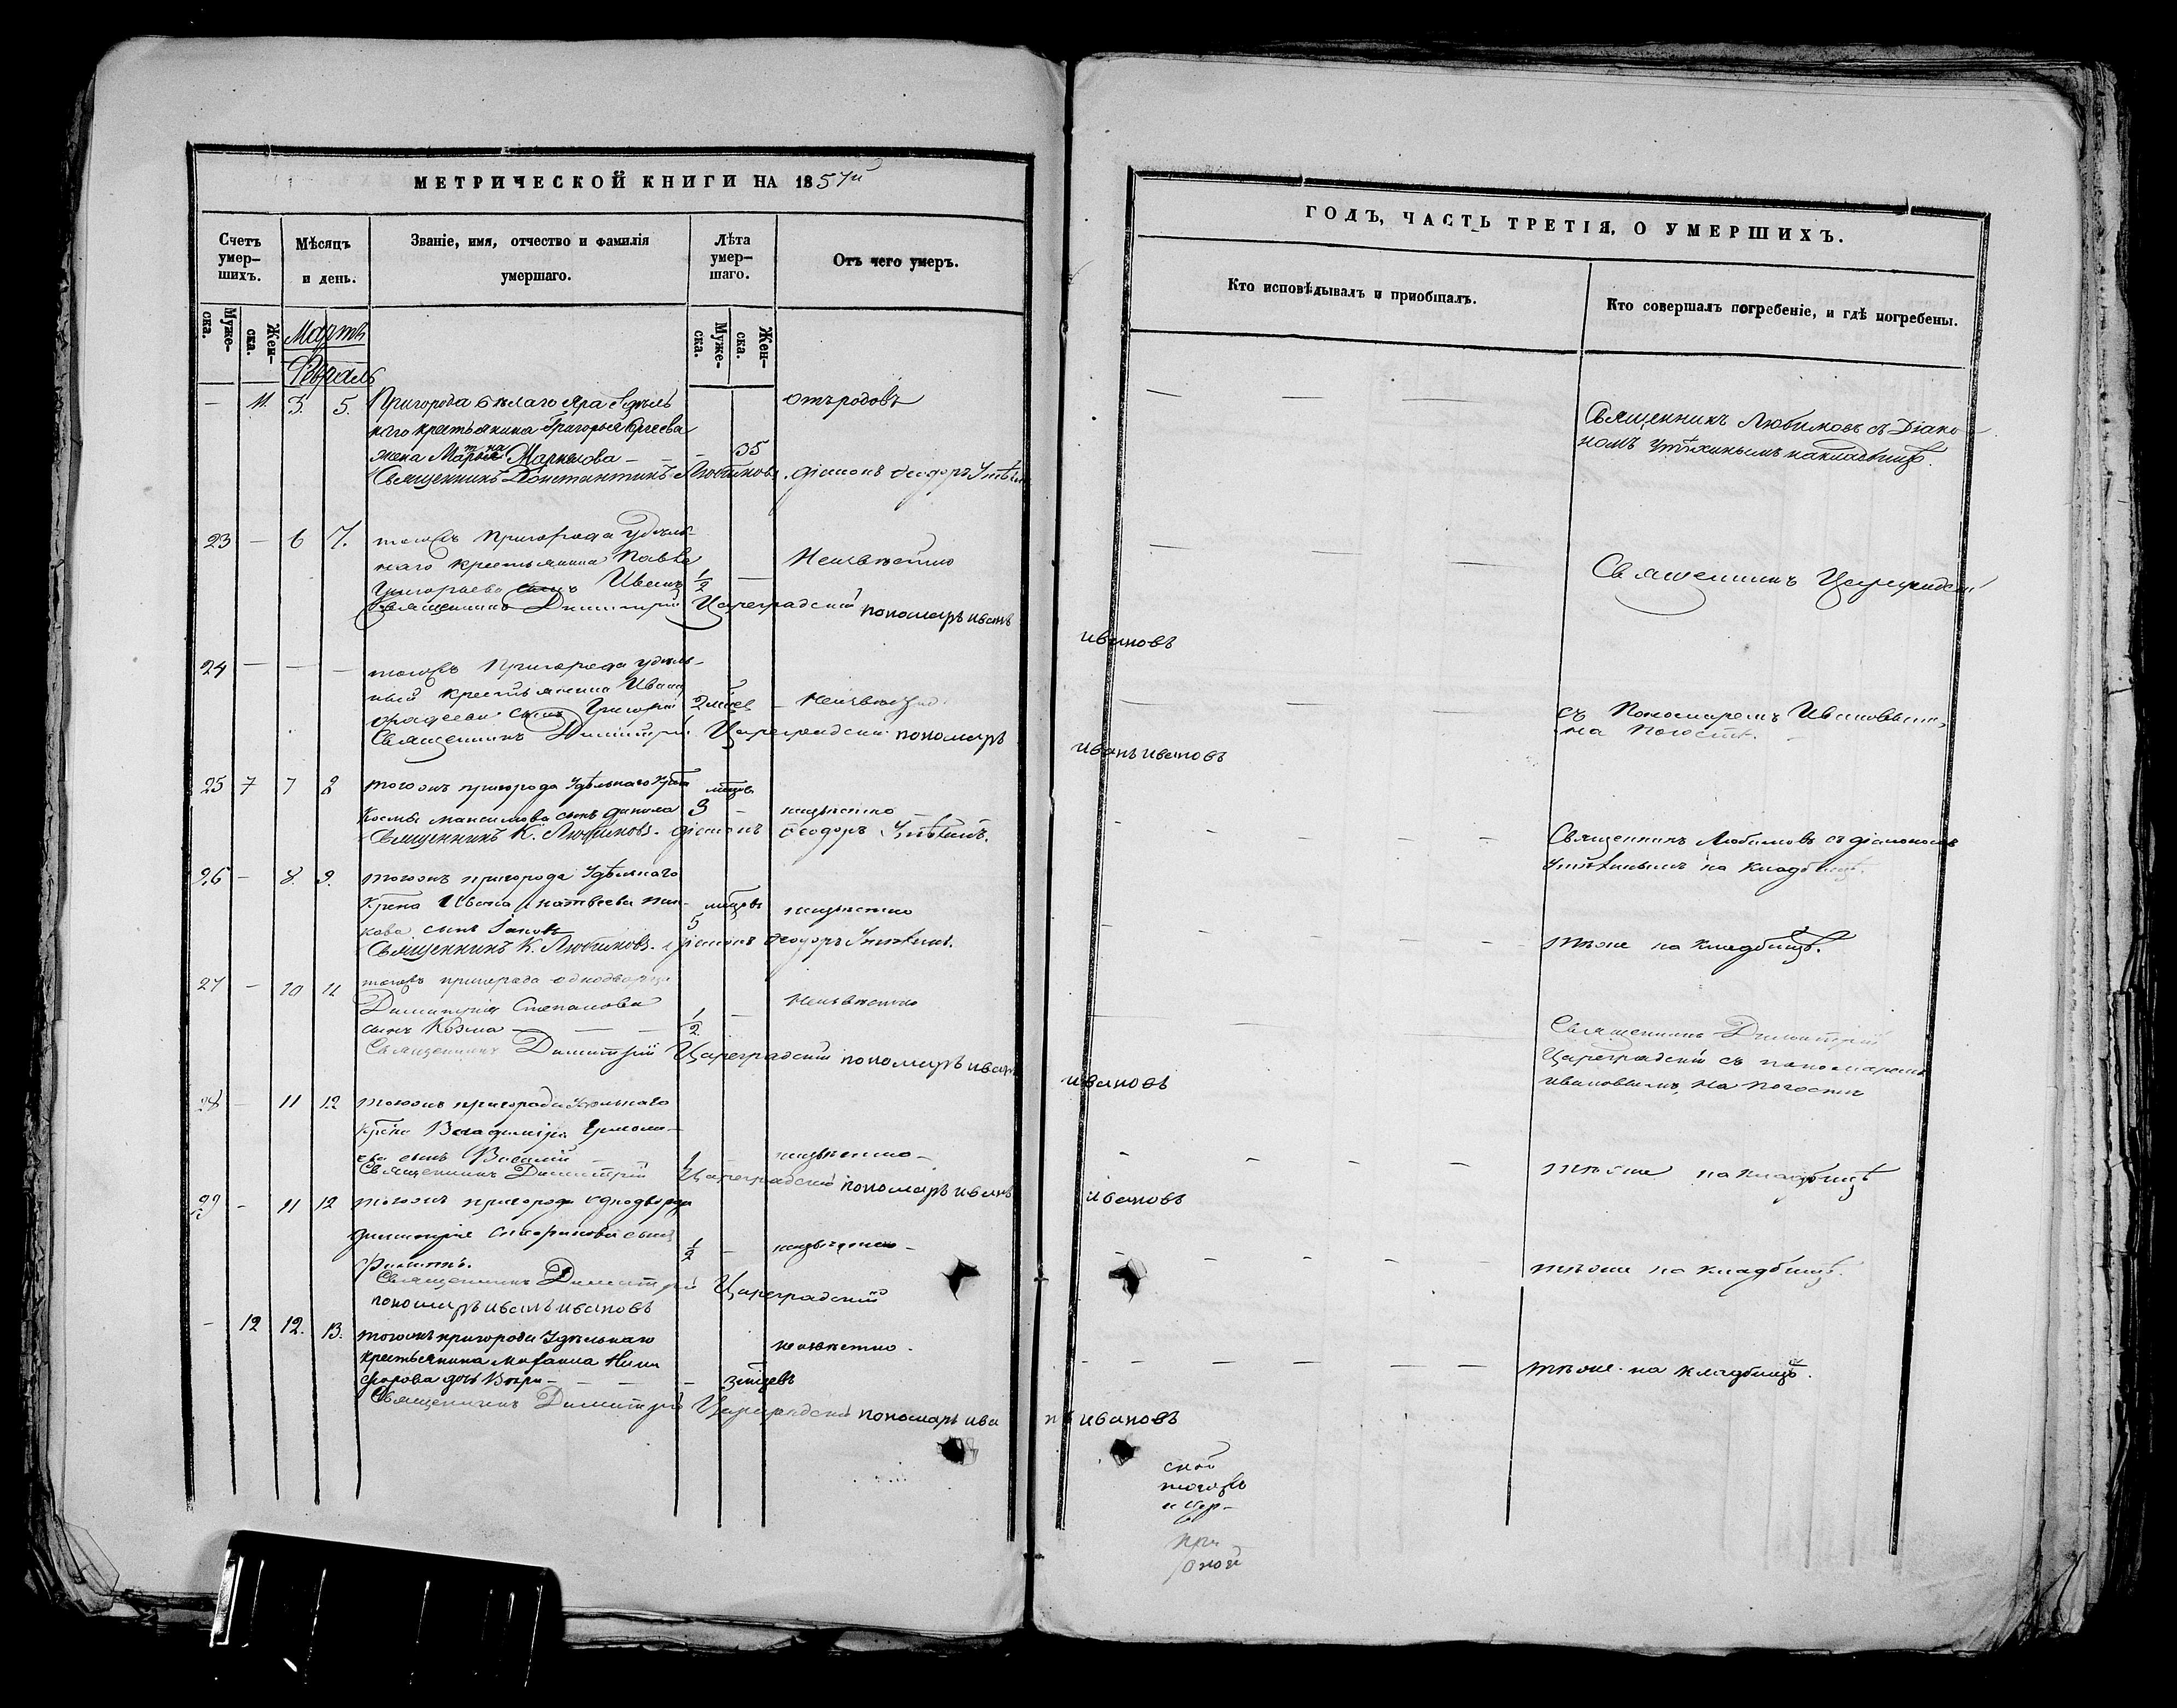 МЕТРИЧЕСКОЙ КНИГИ НА 1857й
Счетъ умер-шихъ.
Мѣсяцъ и день.
Званіе, имя, отчество и фамилія умершаго.
Лѣта умер-шаго.
Отъ чего умеръ.
Муже-ска.
Жен-ска.
Мартъ
Февраль
Муже-ска.
Жен-ска.
— 11. 3. 5. Пригорода бѣлаго Яра Удѣль
наго крестьянина Григорья Сергеева
жена Марья — — 35
отъ родовъ
Священникъ Константинъ Любимовъ. діаконъ Ѳеодоръ Утѣхин
23 — 6 7. тогожъ Пригорода удѣль
наго крестьянина Павла
Григорьева сынъ Иванъ 1/2 —
Неизвѣстно
Священникъ Димитрій Цареградскій пономарь иванъ
24 — — — тогожъ Пригорода удѣль-
ный крестьянина Ивана
сынъ Григорій 2 мѣсец —
Неизвѣстно
Священникъ Димитрій Цареградскій пономарь
25 7 7 8 тогожъ пригорода Удѣльнаго Крест
Космы максимова сынъ данила 3 мѣсцов —
неизвѣстно
Священникъ К. Любимовъ. діаконъ Ѳеодоръ Утѣхинъ.
26 — 8. 9. тогожъ пригорода Удѣльнаго
Крѣна Ивана матвеева
кова сынъ Іаковъ 5 мѣсцовъ
неизвѣстно
Священникъ К. Любимовъ. діаконъ Ѳеодоръ Утѣхинъ.
27 — 10 11 тогожъ пригорода однодворца
Димитрія Степанова
сынъ Козма — — — 1/2 —
Неизвѣстно
Священникъ Димитрій Цареградскій пономарь иванъ
28 — 11 12 тогожъ пригорода Удѣльнаго
Крѣна Владиміра Ермола-
ева сынъ Василій —
неизвѣстно —
Священникъ Димитрій Цареградскій пономарь иванъ
29 — 11 12 тогожъ пригорода однодворца
димитрія сынъ
Филиппъ. 1/2 —
неизвѣстно —
Священникъ Димитрій Цареградскій
пономарь иванъ ивановъ
— 12 12. 13. тогожъ пригорода Удѣльнаго
крестьянина михаила Ники
форова дочь Вѣра — — — 3 мѣсцевъ
неизвѣстно.
Священникъ Димитрій Цареградскій пономарь ива
ГОДЪ, ЧАСТЬ ТРЕТІЯ, О УМЕРШИХЪ.
Кто исповѣдывалъ и пріобщалъ.
Кто совершалъ погребеніе, и гдѣ погребены.
Священникъ Любимовъ съ Діако
номъ Утѣхинымъ на кладбищѣ.
Священникъ Цареградскій
ивановъ
съ Пономаремъ Ивановымъ,
на Погостѣ.
иванъ ивановъ
Священникъ Любимовъ съ діакономъ
Утѣхинымъ на кладбищѣ.
тѣже на кладбищѣ.
Священникъ Димитрій
Цареградскій съ пономаремъ
ивановымъ, на Погостѣ
ивановъ
тѣже на кладбищѣ
ивановъ
тѣже на кладбищѣ.
тѣже на кладбищѣ.
нъ ивановъ
ской
тогожъ